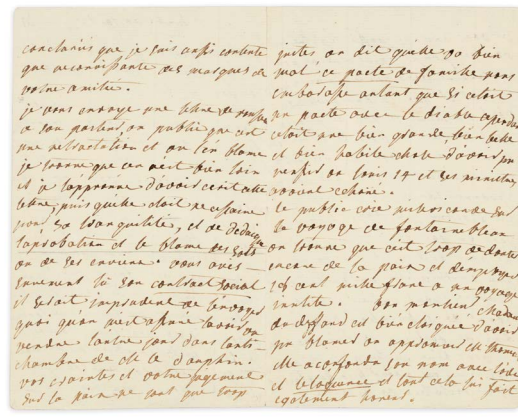 conclurüs que je suis aussi contente
que reconnoissante des marques de
votre amitie.
je vous envoye une lettre de
a son pasteur, on publie que c'est
une retractation et on l'en blame
je trouve que ce n'est bien loin
et je l'approuve d'avoir ecrit cette
lettre, puis qu'elle etoit necessaire
pour sa tranquilité, et de
l'aprobation et le blame des sots
on de ses envieux. vous aves
surement lu son contract social
il seroit imprudent de l'envoyer
quoi qu'on m'ait assuré l'avoir vu
vendre l'autre jour dans l'anti-
chambre de M le dauphin.
vos craintes et votre jugement
sur la paix ne sont que trop
justes on dit qu'elle va bien
mal ce pacte de famille nous
embarasse autant que si c'etoit
un pacte avec le diable cependant
c'etoit une bien grande, bien belle
et bien habile chose d'avoir pu
penser en louis 14 et ses ministres
avoient echoué.
le public crie misericorde sur
le voyage de fontainebleau
on trouve que c'est trop de
encore de la paix et d'employer
cent mille francs a un voyage
inutile. bon monsieur, madame
du deffand est bien eloignée d'avoir
pu blamer ou approuver M
elle a confondu son nom avec
et l'eloquence et tout cela lui fait
egalement horreur.